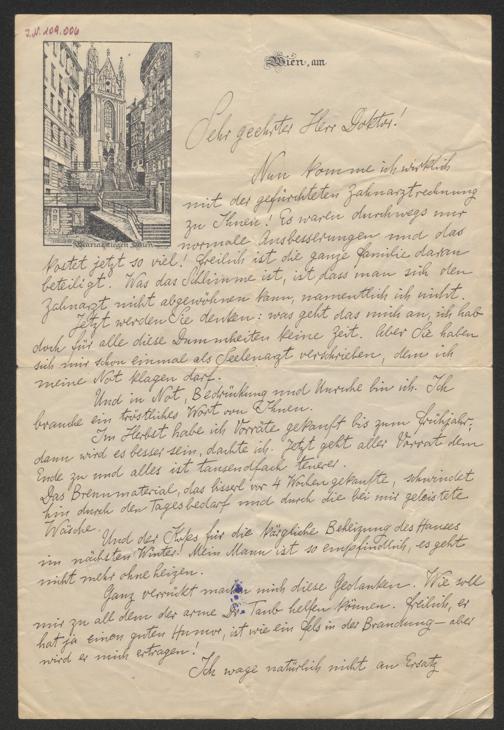 J.N. 109.006
Wien, am
Mariastiegen Wien
Sehr geehrter Herr Doktor!
Nun komme ich wirklich
mit der gefürchteten Zahnarztrechnung
zu Ihnen! Es waren durchwegs nur
normale Ausbesserungen und das
kostet jetzt so viel! Freilich ist die ganze Familie daran
beteiligt. Was das Schlimme ist, ist dass man sich den
Zahnarzt nicht abgewöhnen kann, namentlich ich nicht.
Jetzt werden Sie denken: was geht das mich an, ich hab
doch für alle diese Dummheiten keine Zeit. Aber Sie haben
sich mir schon einmal als Seelenarzt verschrieben, dem ich
meine Not klagen darf.
Und in Not, Bedrückung und Unruhe bin ich. Ich
brauche ein tröstliches Wort von Ihnen.
Im Herbst habe ich Vorräte gekauft bis zum Frühjahr,
dann wird es besser sein, dachte ich. Jetzt geht aller Vorrat dem
Ende zu und alles ist tausendfach teurer.
Das Brennmaterial, das bisserl vor 4 Wochen gekaufte, schwindet
hin durch den Tagesbedarf und durch die bei mir geleistete
Wäsche.
Und der für die kärgliche Beheizung des Hauses
im nächsten Winter! Mein Mann ist so empfindlich, es geht
nicht mehr ohne heizen.
Ganz verrückt machen mich diese Gedanken. Wie soll
mir zu all dem der arme Dr Taub helfen können. Freilich, er
hat ja einen guten Humor, ist wie ein Fels in der Brandung – aber
wird er mich ertragen!
Ich wage natürlich nicht an Ersatz